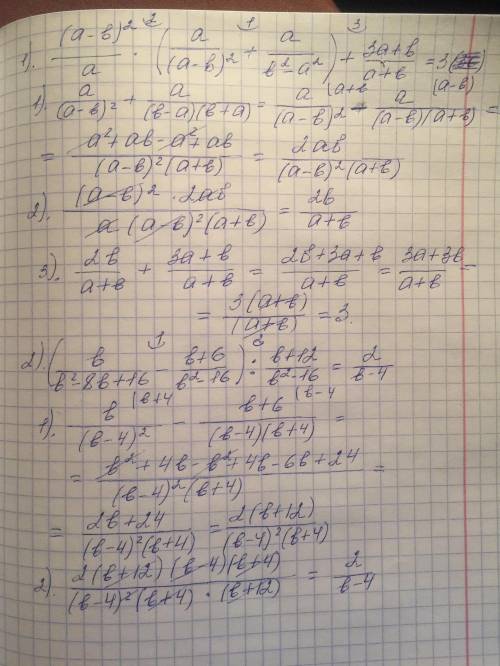 1). (a-b)²/a · (a/(a-b)² + a/(b²-a²)) + (3a+b)/(a+b) = 3
1) a/(a-b)² + a/((b-a)(b+a)) = a/(a-b)² |(a+b - a/((a-b)(a+b)) (a-b) =
= (a²+ab-a²+ab)/((a-b)²(a+b)) = 2ab/((a-b)²(a+b))
2). ((a-b)²·2ab)/(a(a-b)²(a+b)) = 2b/(a+b)
3). 2b/(a+b) + (3a+b)/(a+b) = (2b+3a+b)/(a+b) = (3a+3b)/(a+b) =
= 3(a+b)/(a+b) = 3.
2). (b/(b²-8b+16) - (b+6)/(b²-16)) : (b+12)/(b²-16) = 2/(b-4)
1) b/(b-4)² |(b+4 - (b+6)/((b-4)(b+4)) |(b-4 =
= (b²+4b-b²+4b-6b+24)/((b-4)²(b+4)) =
= (2b+24)/((b-4)²(b+4)) = 2(b+12)/((b-4)²(b+4))
2). (2(b+12)(b-4)(b+4))/((b-4)²(b+4)·(b+12)) = 2/(b-4)